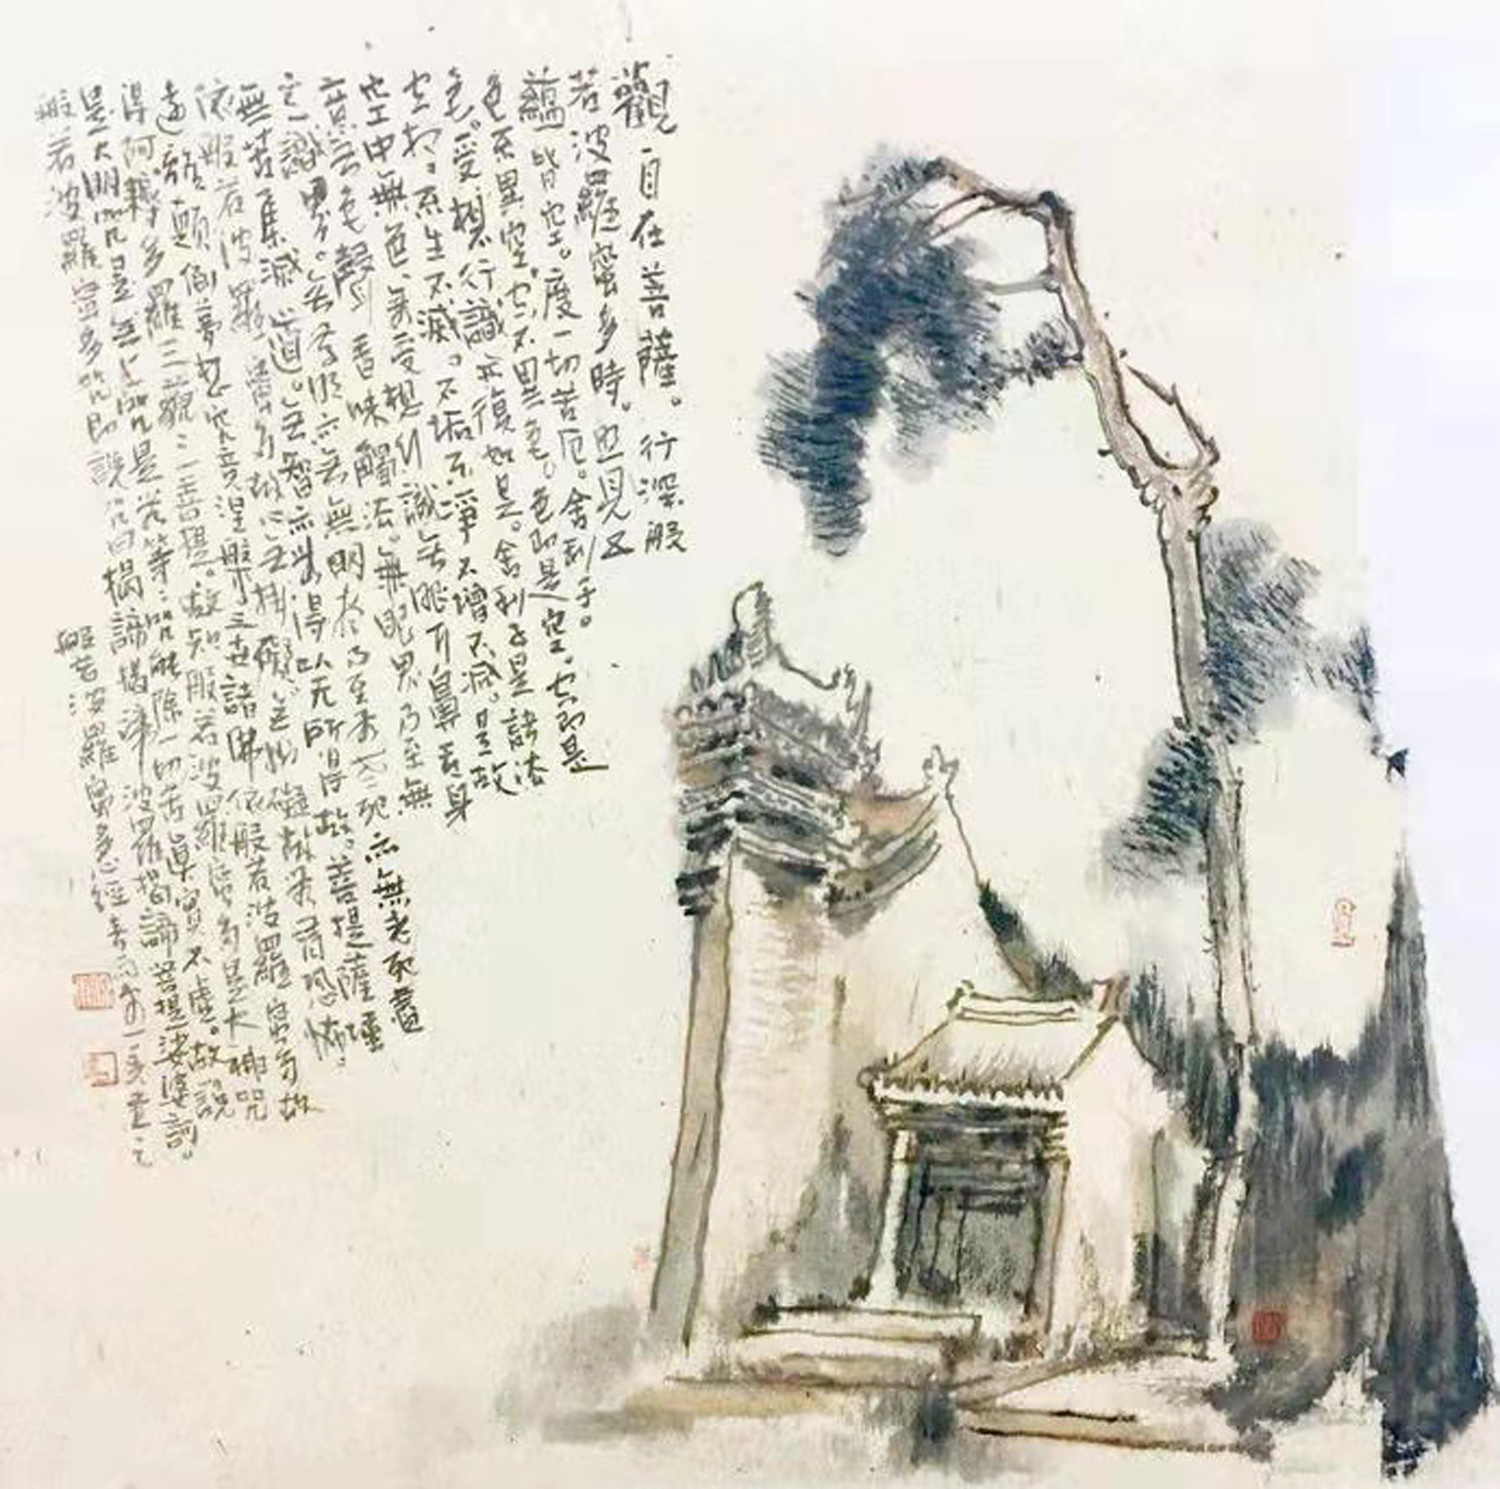 觀自在菩薩。行深般
若波羅蜜多時。照見五
蘊皆空。度一切苦厄。舍利子。
色不異空。空不異色。色即是空。空即是
色。受想行識亦復如是。舍利子是諸法
空相。不生不滅。不垢不淨不增不減。是故
空中無色。無受想行識無眼耳鼻舌身
意無色聲香味觸法。無眼界乃至無
意識界。無無明亦無無明盡乃至無老死亦無老死盡
無苦集滅道。無智亦無得以无所得故。菩提薩埵
依般若波羅蜜多故心無掛礙無掛礙故無有恐怖
遠離顛倒夢想究竟涅槃三世諸佛依般若波羅蜜多故
得阿耨多羅三藐三菩提。故知般若波羅蜜多是大神咒
是大明咒是無上咒是無等等咒能除一切苦真實不虛。故說
般若波羅蜜多咒即說咒曰揭諦揭諦波羅揭諦菩提娑婆訶。
般若波羅蜜多心經